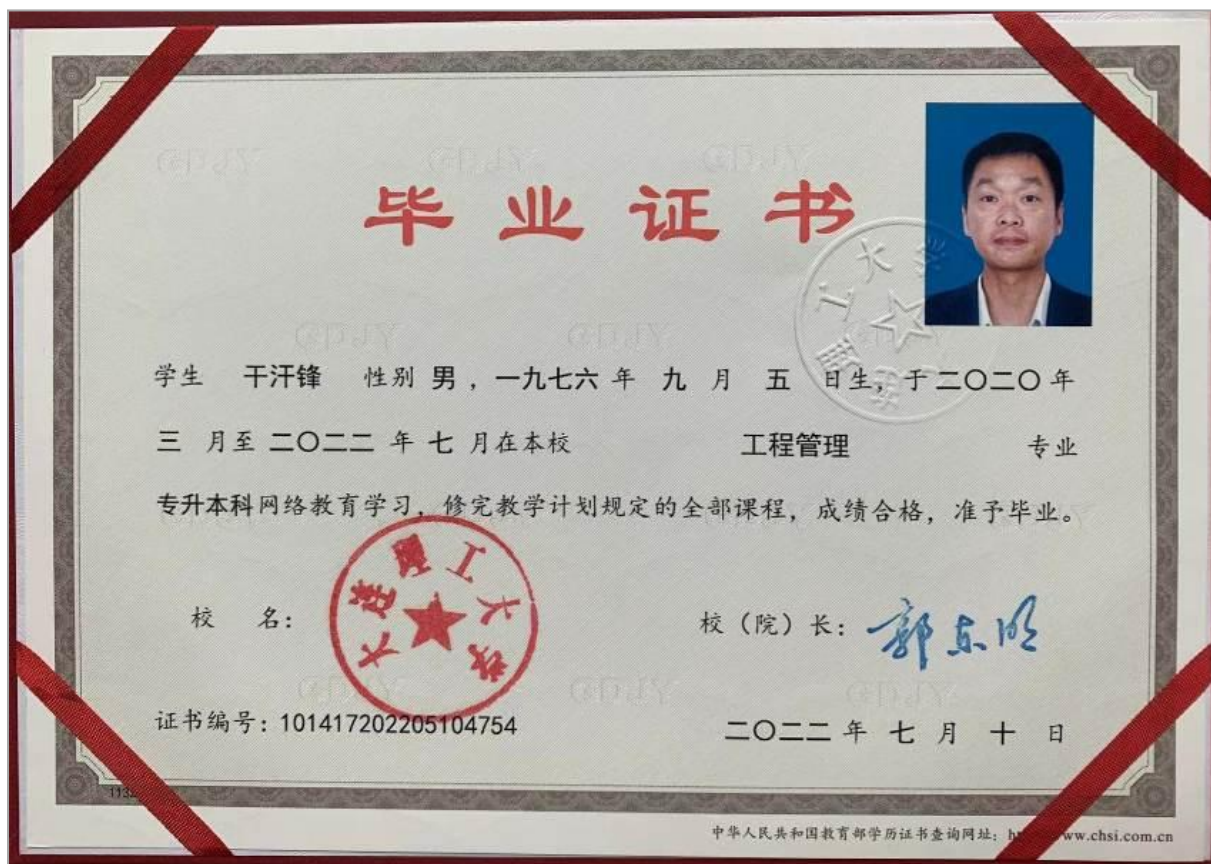 毕业证书
学生 干汗锋 性别 男，一九七六 年 九 月 五 日生，于 二〇二〇 年
三 月至 二〇二二 年 七 月在本校 工程管理 专业
专升本科 网络教育学习，修完教学计划规定的全部课程，成绩合格，准予毕业。
大连理工大学
校 名：
校（院）长： 郭东明
证书编号：101417202205104754
二〇二二 年 七 月 十 日
中华人民共和国教育部学历证书查询网址：
ww.chsi.com.cn